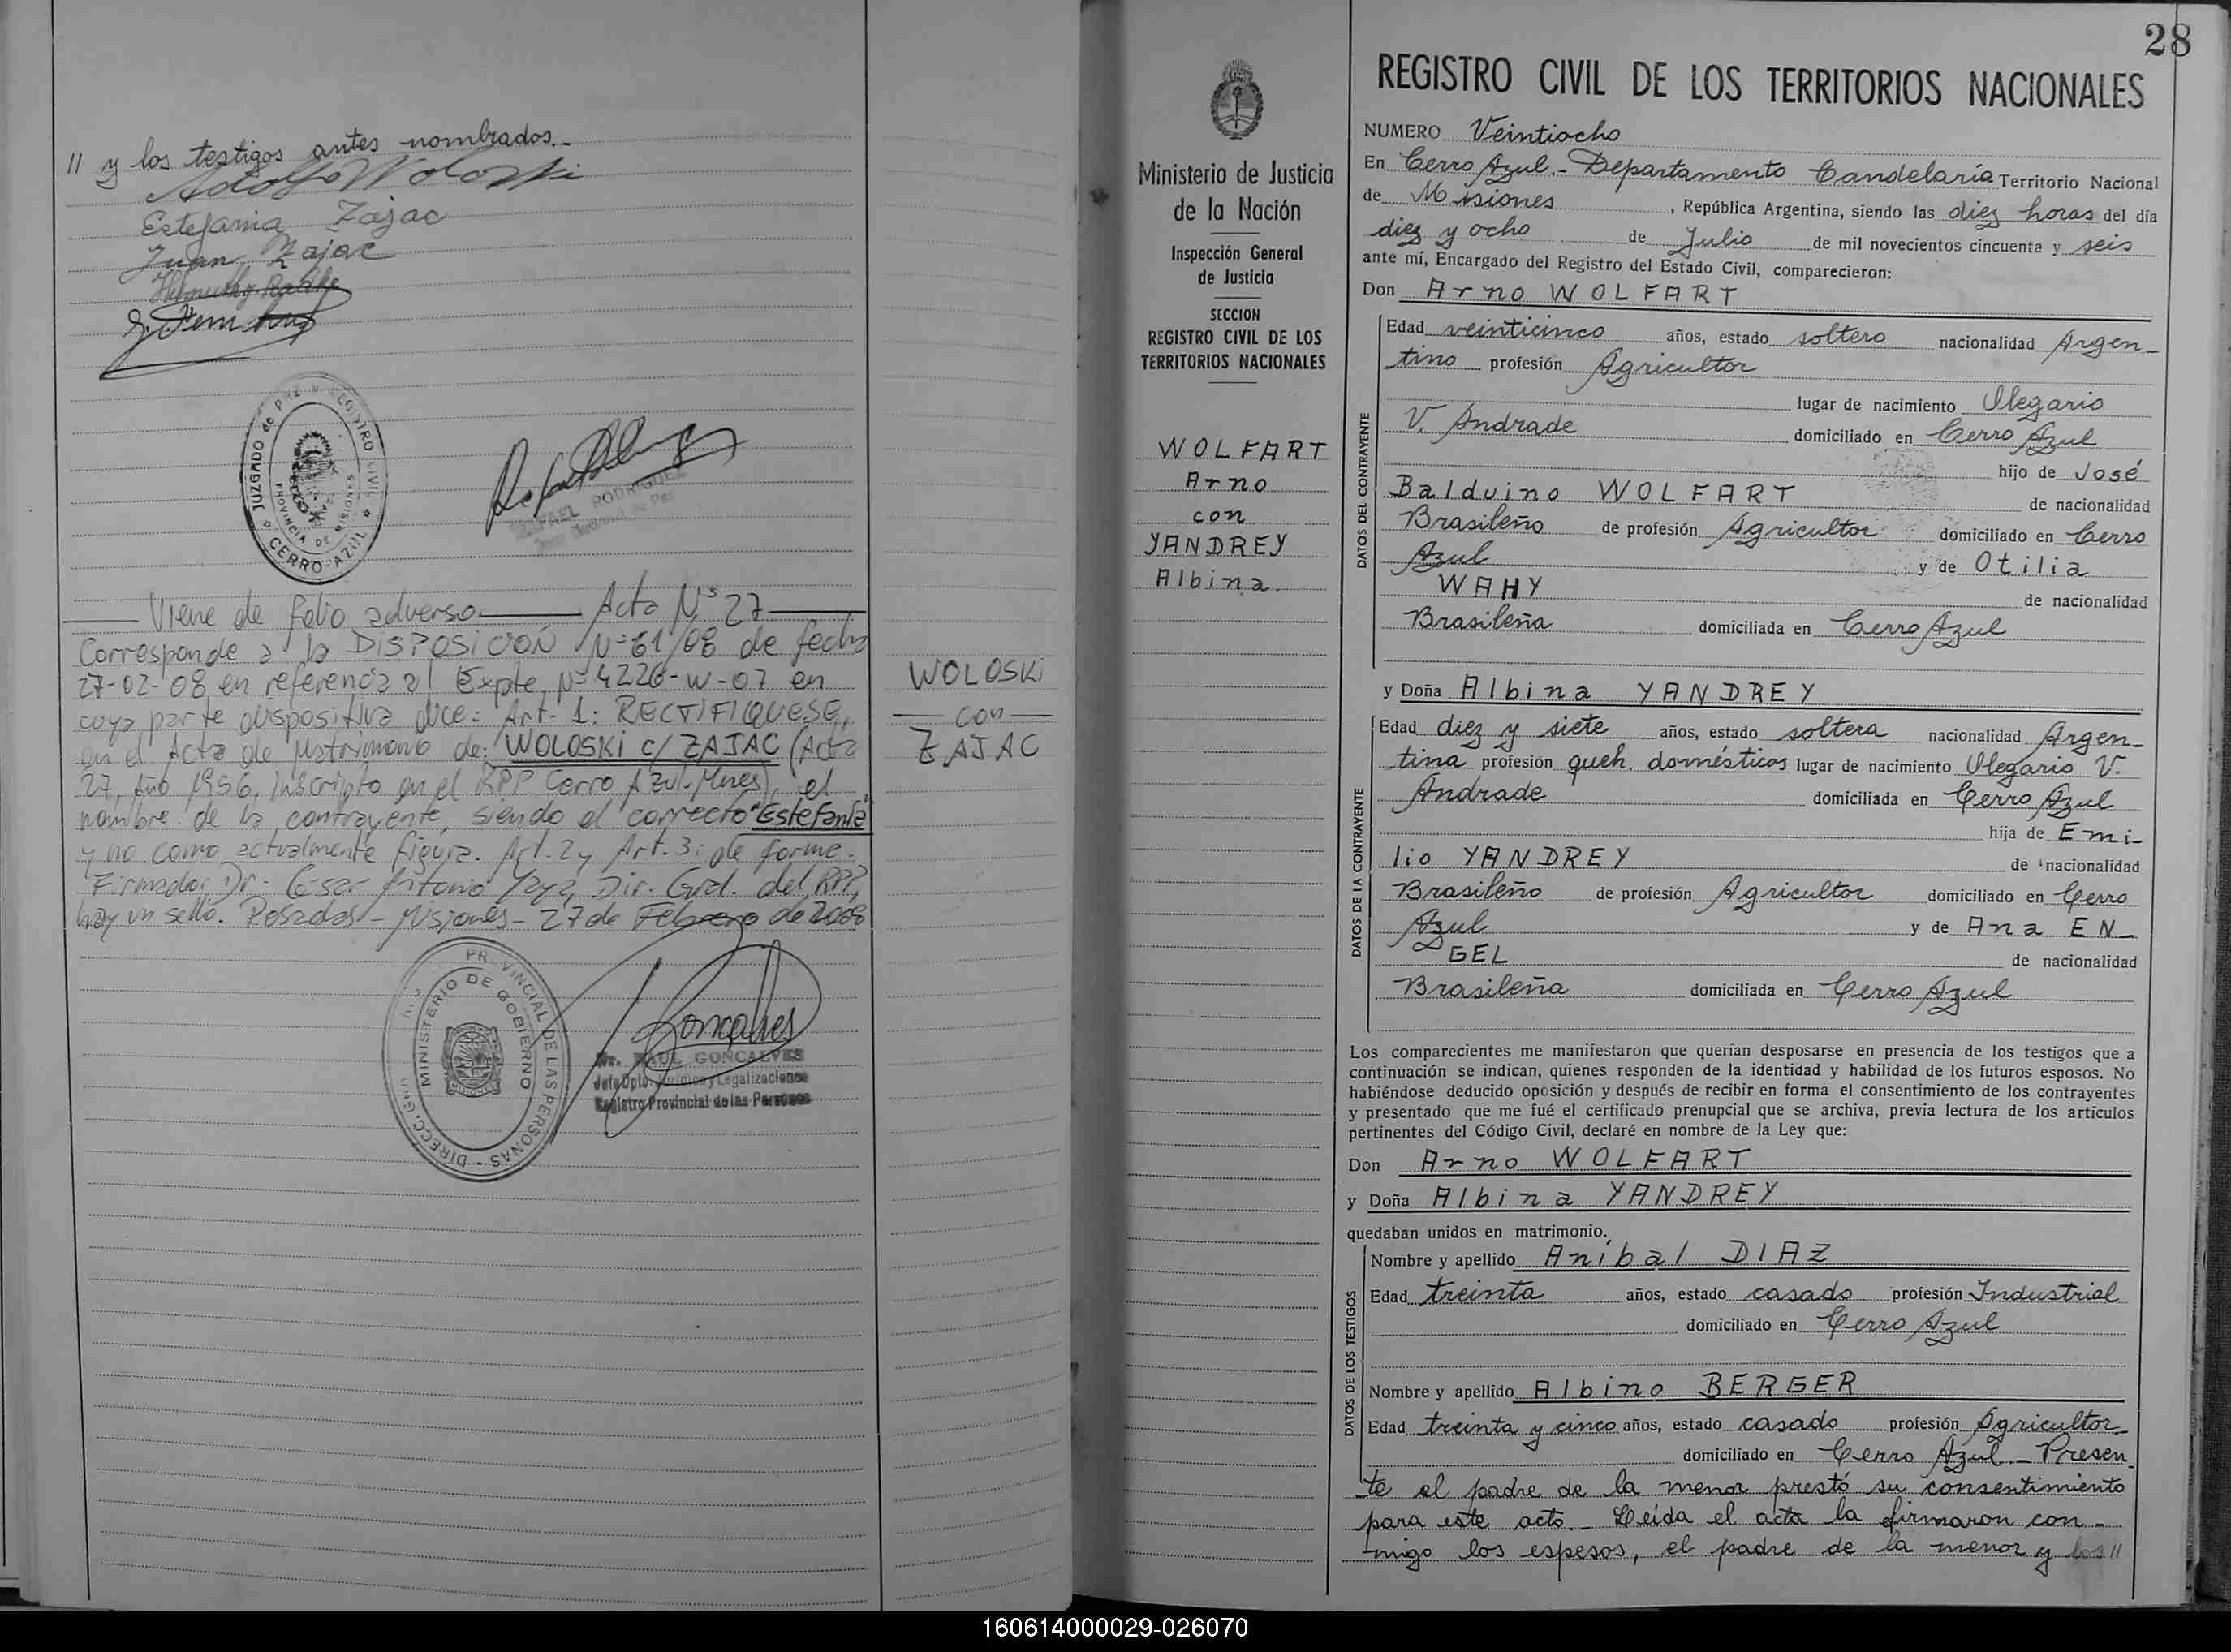 // y los testigos antes nombrados.-
Adolfo Woloski
Estefania Zajac
Juan Zajac
JUZGADO de PAZ Y REGISTRO CIVIL
PROVINCIA DE MISIONES
CERRO AZUL
RAFAEL RODRIGUEZ
Viene de folio adverso — Acta Nº 27 —
Corresponde a la DISPOSICION Nº 61/08 de fecha
27-02-08 en referencia al Expte Nº 4226-W-07 en
cuya parte dispositiva dice: Art. 1: RECTIFIQUESE,
en el Acta de Matrimonio de: WOLOSKI c/ ZAJAC (Acta
27, Año 1956, Inscripto en el RPP Cerro Azul-Mnes), el
nombre de la contrayente, siendo el correcto "Estefanía"
y no como actualmente figura. Art. 2 y Art. 3: de forme.
Firmador Dr. Cesar Antonio Dir. Gral. del RPP,
hay un sello. Posadas - Misiones - 27 de Febrero de 2008
WOLOSKI
— con —
ZAJAC
MINISTERIO DE GOBIERNO
PROVINCIAL DE LAS PERSONAS - DIRECC. GRAL.
Goncalves
Dr. RAUL GONCALVES
Jefe Dpto. Jurídico y Legalizaciones
Registro Provincial de las Personas
28
Ministerio de Justicia
de la Nación
Inspección General
de Justicia
SECCION
REGISTRO CIVIL DE LOS
TERRITORIOS NACIONALES
WOLFART
Arno
con
YANDREY
Albina.
REGISTRO CIVIL DE LOS TERRITORIOS NACIONALES
NUMERO Veintiocho
En Cerro Azul.- Departamento Candelaria Territorio Nacional
de Misiones, República Argentina, siendo las diez horas del día
diez y ocho de Julio de mil novecientos cincuenta y seis
ante mí, Encargado del Registro del Estado Civil, comparecieron:
Don Arno WOLFART
DATOS DEL CONTRAYENTE
Edad veinticinco años, estado soltero nacionalidad Argen-
tino profesión Agricultor
lugar de nacimiento Olegario
V. Andrade domiciliado en Cerro Azul
hijo de José
Balduino WOLFART de nacionalidad
Brasileño de profesión Agricultor domiciliado en Cerro
Azul y de Otilia
WAHY de nacionalidad
Brasileña domiciliada en Cerro Azul
y Doña Albina YANDREY
DATOS DE LA CONTRAYENTE
Edad diez y siete años, estado soltera nacionalidad Argen-
tina profesión queh. domésticos lugar de nacimiento Olegario V.
Andrade domiciliada en Cerro Azul
hija de Emi-
lio YANDREY de nacionalidad
Brasileño de profesión Agricultor domiciliado en Cerro
Azul y de Ana EN-
GEL de nacionalidad
Brasileña domiciliada en Cerro Azul
Los comparecientes me manifestaron que querían desposarse en presencia de los testigos que a
continuación se indican, quienes responden de la identidad y habilidad de los futuros esposos. No
habiéndose deducido oposición y después de recibir en forma el consentimiento de los contrayentes
y presentado que me fué el certificado prenupcial que se archiva, previa lectura de los artículos
pertinentes del Código Civil, declaré en nombre de la Ley que:
Don Arno WOLFART
y Doña Albina YANDREY
quedaban unidos en matrimonio.
DATOS DE LOS TESTIGOS
Nombre y apellido Aníbal DIAZ
Edad treinta años, estado casado profesión Industrial
domiciliado en Cerro Azul
Nombre y apellido Albino BERGER
Edad treinta y cinco años, estado casado profesión Agricultor
domiciliado en Cerro Azul.- Presen-
te el padre de la menor prestó su consentimiento
para este acto.- Leída el acta la firmaron con-
migo los espesos, el padre de la menor y los //
160614000029-026070